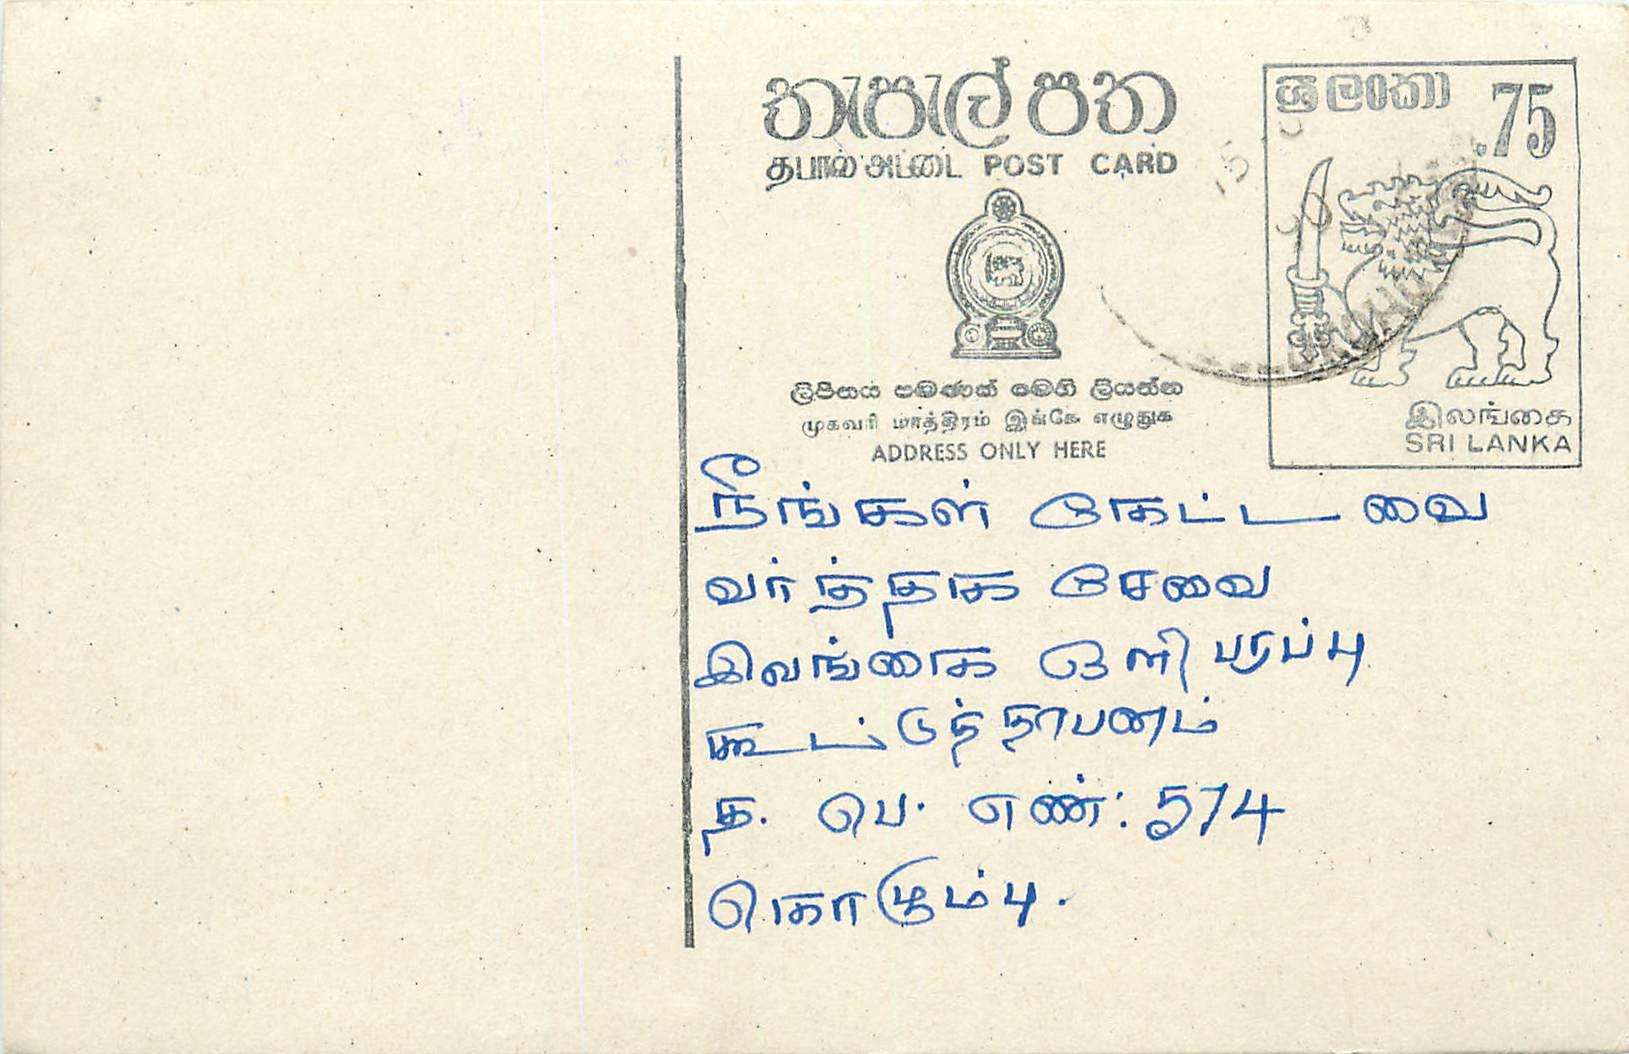 තැපැල් පත
தபால் அட்டை POST CARD
ශ්‍රී ලංකා
.75
ලිපිනය පමණක් මෙහි ලියන්න
முகவரி மாத்திரம் இங்கே எழுதுக
ADDRESS ONLY HERE
இலங்கை
SRI LANKA
நீங்கள் கேட்டவை
வர்த்தக சேவை
இலங்கை ஒளிபரப்பு
கூட்டுத்தாபனம்
த. பெ. எண்: 574
கொழும்பு.